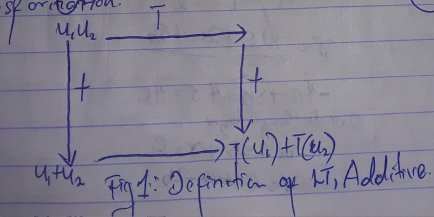 T
u₁u₂
+ +
u₁+u₂ T(u₁)+T(u₂)
Fig 1: Definition of LT, Additive.